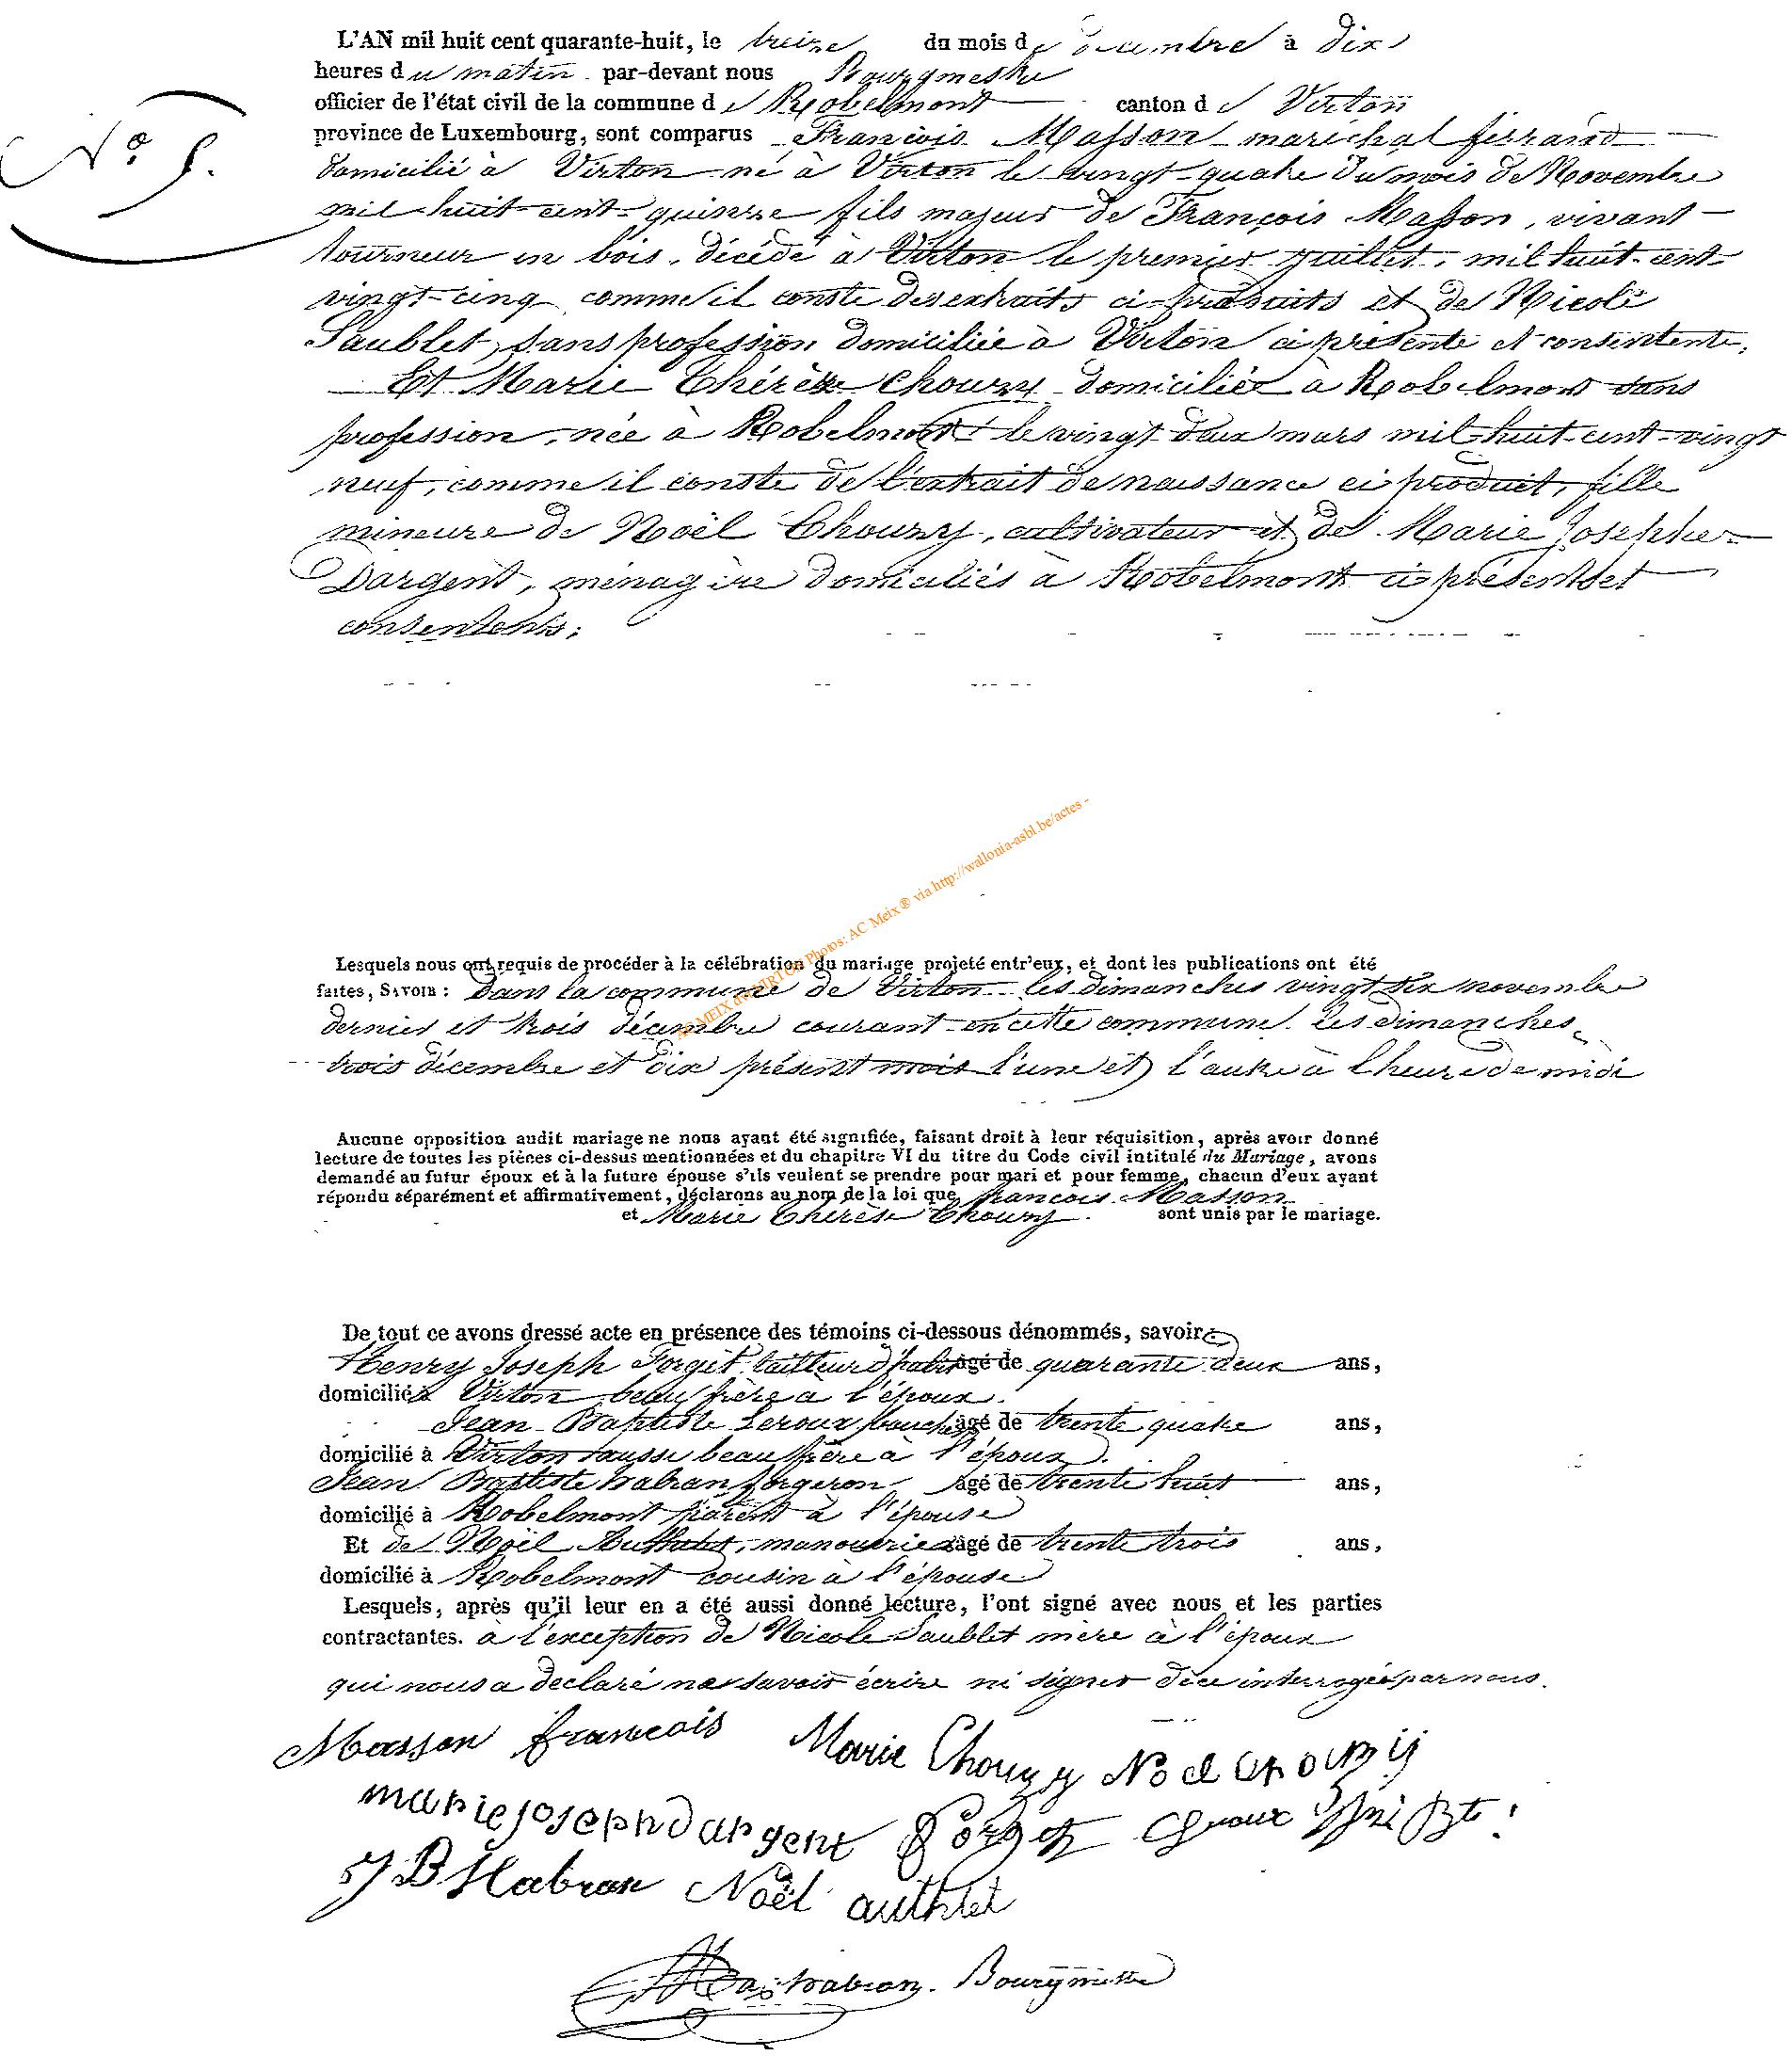 L'AN mil huit cent quarante-huit, le treize du mois de décembre à dix
heures du matin par-devant nous Bourgmestre
officier de l'état civil de la commune de Robelmont canton de Virton
province de Luxembourg, sont comparus François Masson maréchal ferrand
N° 5.
domicilié à Virton né à Virton le vingt-quatre du mois de Novembre
mil huit cent quinze fils majeur de François Masson, vivant
tourneur en bois, décédé à Virton le premier juillet, mil huit cent
vingt-cinq comme il conste des extraits ci-produits et de Nicole
Saublet, sans profession domiciliée à Virton ci présente et consentente,
Et Marie Thérèse Chouzy domiciliée à Robelmont sans
profession, née à Robelmont le vingt deux mars mil huit cent vingt
neuf, comme il conste de l'extrait de naissance ci produit, fille
mineure de Noël Chouzy, cultivateur et de Marie Josephe
Dargent, ménagère domiciliés à Robelmont ci présents et
consentents;
AC MEIX dvt VIRTON Photos: AC Meix ® via http://wallonia-asbl.be/actes -
Lesquels nous ont requis de procéder à la célébration du mariage projeté entr'eux, et dont les publications ont été
faites, SAVOIR: Dans la commune de Virton les dimanches vingt six novembre
dernier et trois décembre courant en cette commune les dimanches
trois décembre et dix présent mois l'une et l'autre à l'heure de midi
Aucune opposition audit mariage ne nous ayant été signifiée, faisant droit à leur réquisition, après avoir donné
lecture de toutes les pièces ci-dessus mentionnées et du chapitre VI du titre du Code civil intitulé du Mariage, avons
demandé au futur époux et à la future épouse s'ils veulent se prendre pour mari et pour femme, chacun d'eux ayant
répondu séparément et affirmativement, déclarons au nom de la loi que françois Masson
et Marie Thérèse Chouzy sont unis par le mariage.
De tout ce avons dressé acte en présence des témoins ci-dessous dénommés, savoir:
Henry Joseph Forget tailleur d'habits âgé de quarante deux ans,
domicilié à Virton beau frère à l'époux.
Jean Baptiste Leroux boucher âgé de trente quatre ans,
domicilié à Virton aussi beau frère à l'époux.
Jean Baptiste habran forgeron âgé de trente huit ans,
domicilié à Robelmont parent à l'épouse
Et de Noël Authelet, manouvrier âgé de trente trois ans,
domicilié à Robelmont cousin à l'épouse
Lesquels, après qu'il leur en a été aussi donné lecture, l'ont signé avec nous et les parties
contractantes. à l'exception de Nicole Saublet mère à l'époux
qui nous a déclaré ne savoir écrire ni signer de ce interrogée par nous.
Masson francois Marie Chouzy Noel Chouzy
marie joseph dargent Forget
J B Habran Noël authlet
habran. Bourgmestre